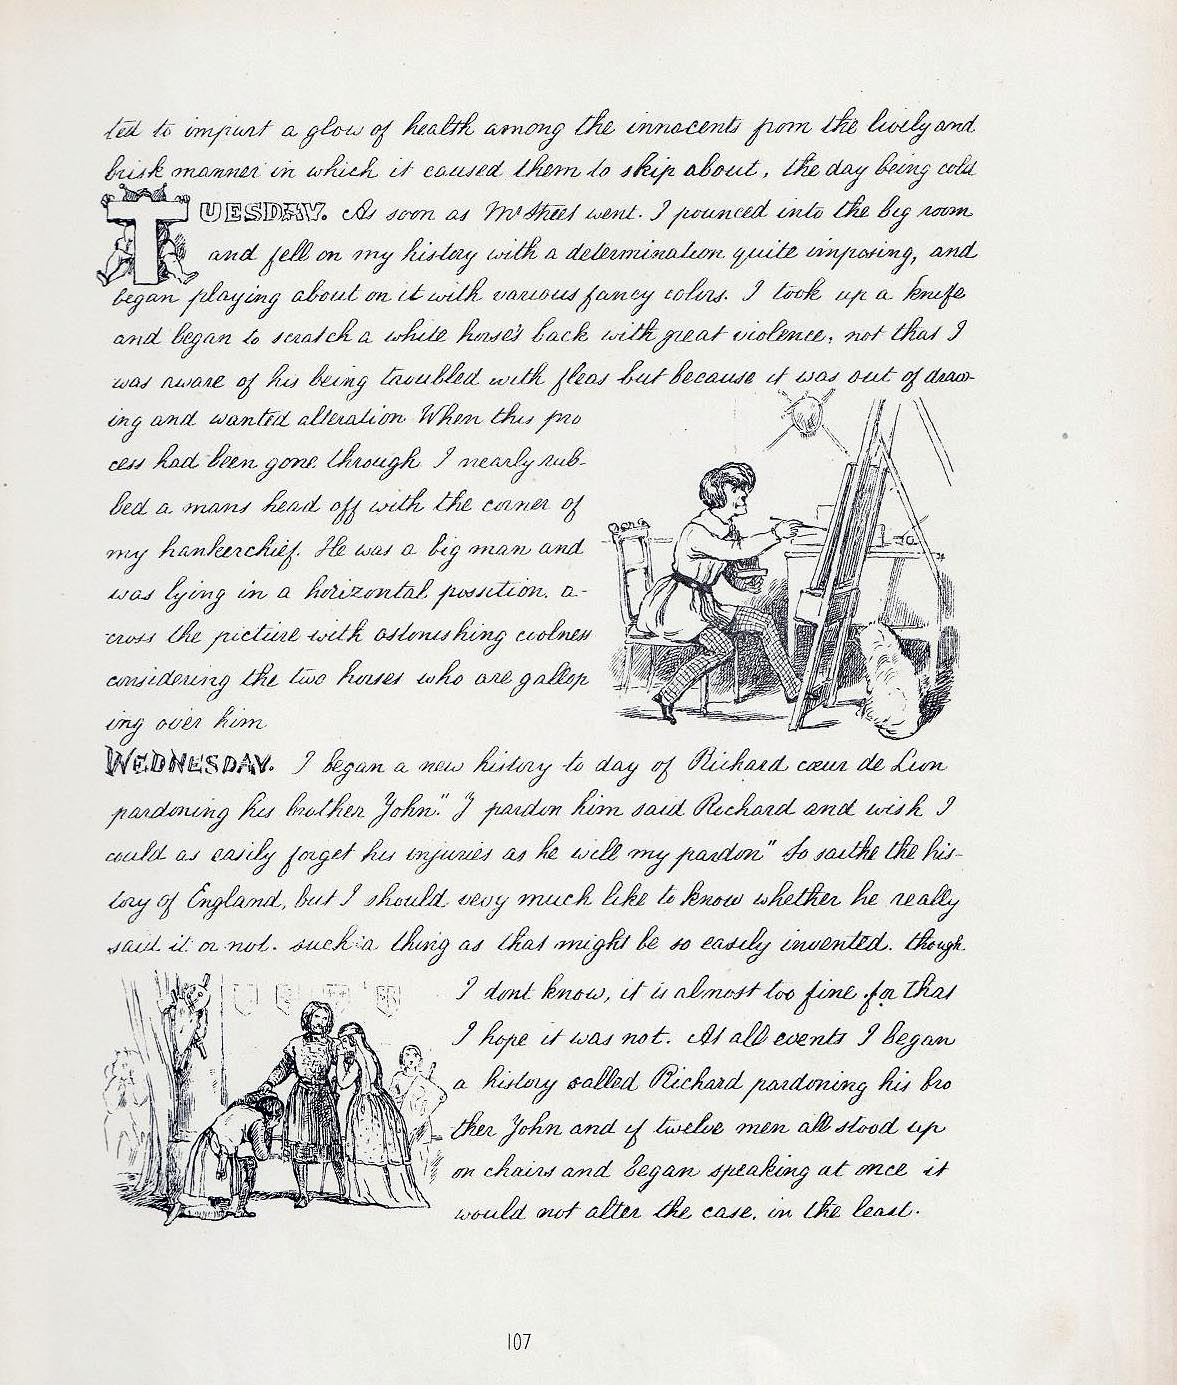 ted to impart a glow of health among the innocents from the lively and
brisk manner in which it caused them to skip about, the day being cold
TUESDAY. As soon as Mr Street went. I pounced into the big room
and fell on my history with a determination quite imposing, and
began playing about on it with various fancy colors. I took up a knife
and began to scratch a white horse's back with great violence, not that I
was aware of his being troubled with fleas but because it was out of draw-
ing and wanted alteration When this pro
cess had been gone through I nearly rub-
bed a mans head off with the corner of
my hankerchief. He was a big man and
was lying in a horizontal possition. a-
cross the picture with astonishing coolness
considering the two horses who are gallop
ing over him
WEDNESDAY. I began a new history to day of Richard cœur de Lion
pardoning his brother John." "I pardon him said Richard and wish I
could as easily forget his injuries as he will my pardon" So saithe the his-
tory of England, but I should very much like to know whether he really
said it or not. such a thing as that might be so easily invented. though
I dont know, it is almost too fine for that
I hope it was not. At all events I began
a history called Richard pardoning his bro
ther John and if twelve men all stood up
on chairs and began speaking at once it
would not alter the case. in the least.
107